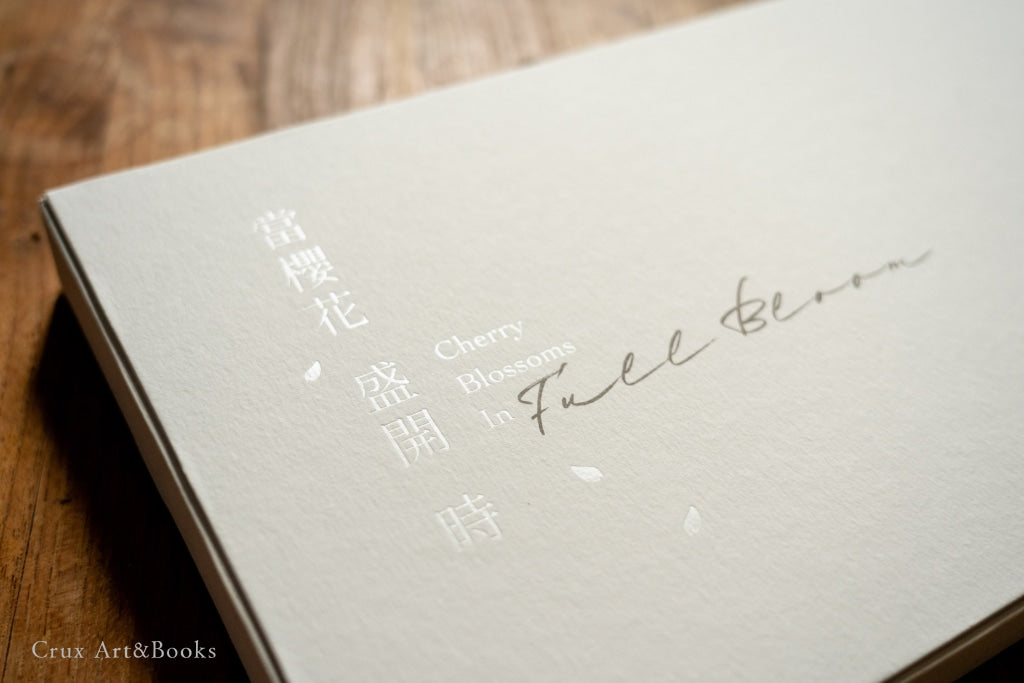 當櫻花
盛開
時
Cherry
Blossoms
In Full Bloom
Crux Art&Books